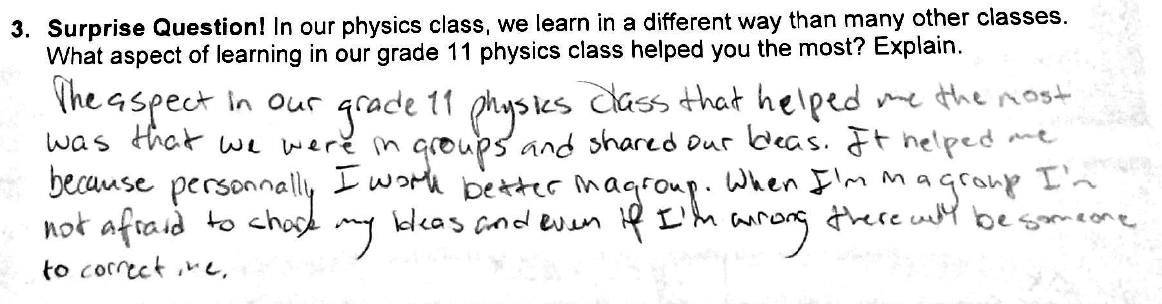 3. Surprise Question! In our physics class, we learn in a different way than many other classes.
What aspect of learning in our grade 11 physics class helped you the most? Explain.
The aspect in our grade 11 physics class that helped me the most
was that we were in groups and shared our ideas. It helped me
because personnally I work better in a group. When I'm in a group I'm
not afraid to share my ideas and even if I'm wrong there will be someone
to correct me.